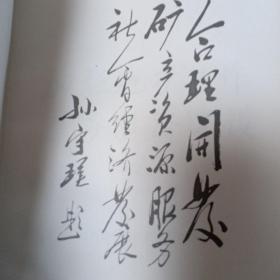 合理開发
矿产资源服务
社会经济发展
孙守璞题